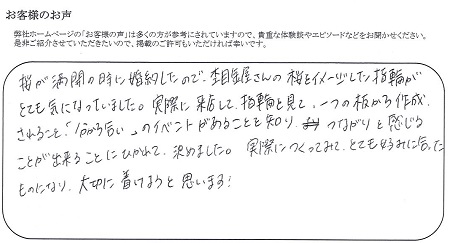 お客様のお声
弊社ホームページの「お客様の声」は多くの方が参考にされていますので、貴重な体験談やエピソードなどをお聞かせください。
是非ご紹介させていただきたいので、掲載のご許可もいただければ幸いです。
桜が満開の時に婚約したので、杢目金屋さんの桜をイメージした指輪が
とても気になっていました。実際に来店して、指輪を見て、一つの板から作成
されること、「分かち合い」のイベントがあることを知り、つながりを感じる
ことが出来ることにひかれて、決めました。実際につくってみて、とても好みに合った
ものになり、大切に着けようと思います!